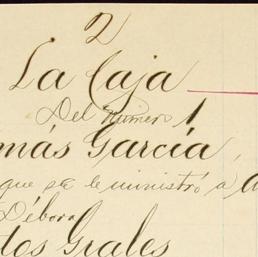 2
La Caja
Del numero 1
más García
que se le ministró a
Débora
tos Grales